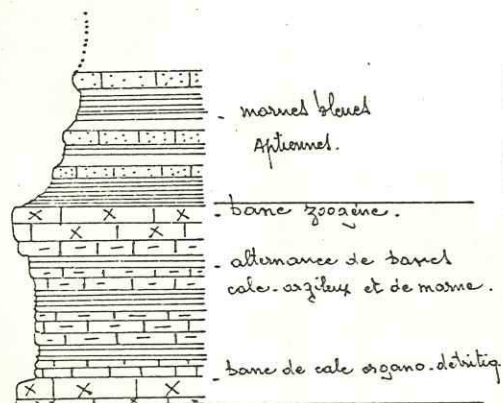 - marnes bleues
Aptiennes.
- banc zoogène.
- alternance de bancs
calc-argileux et de marne.
- banc de calc organo-détritiq